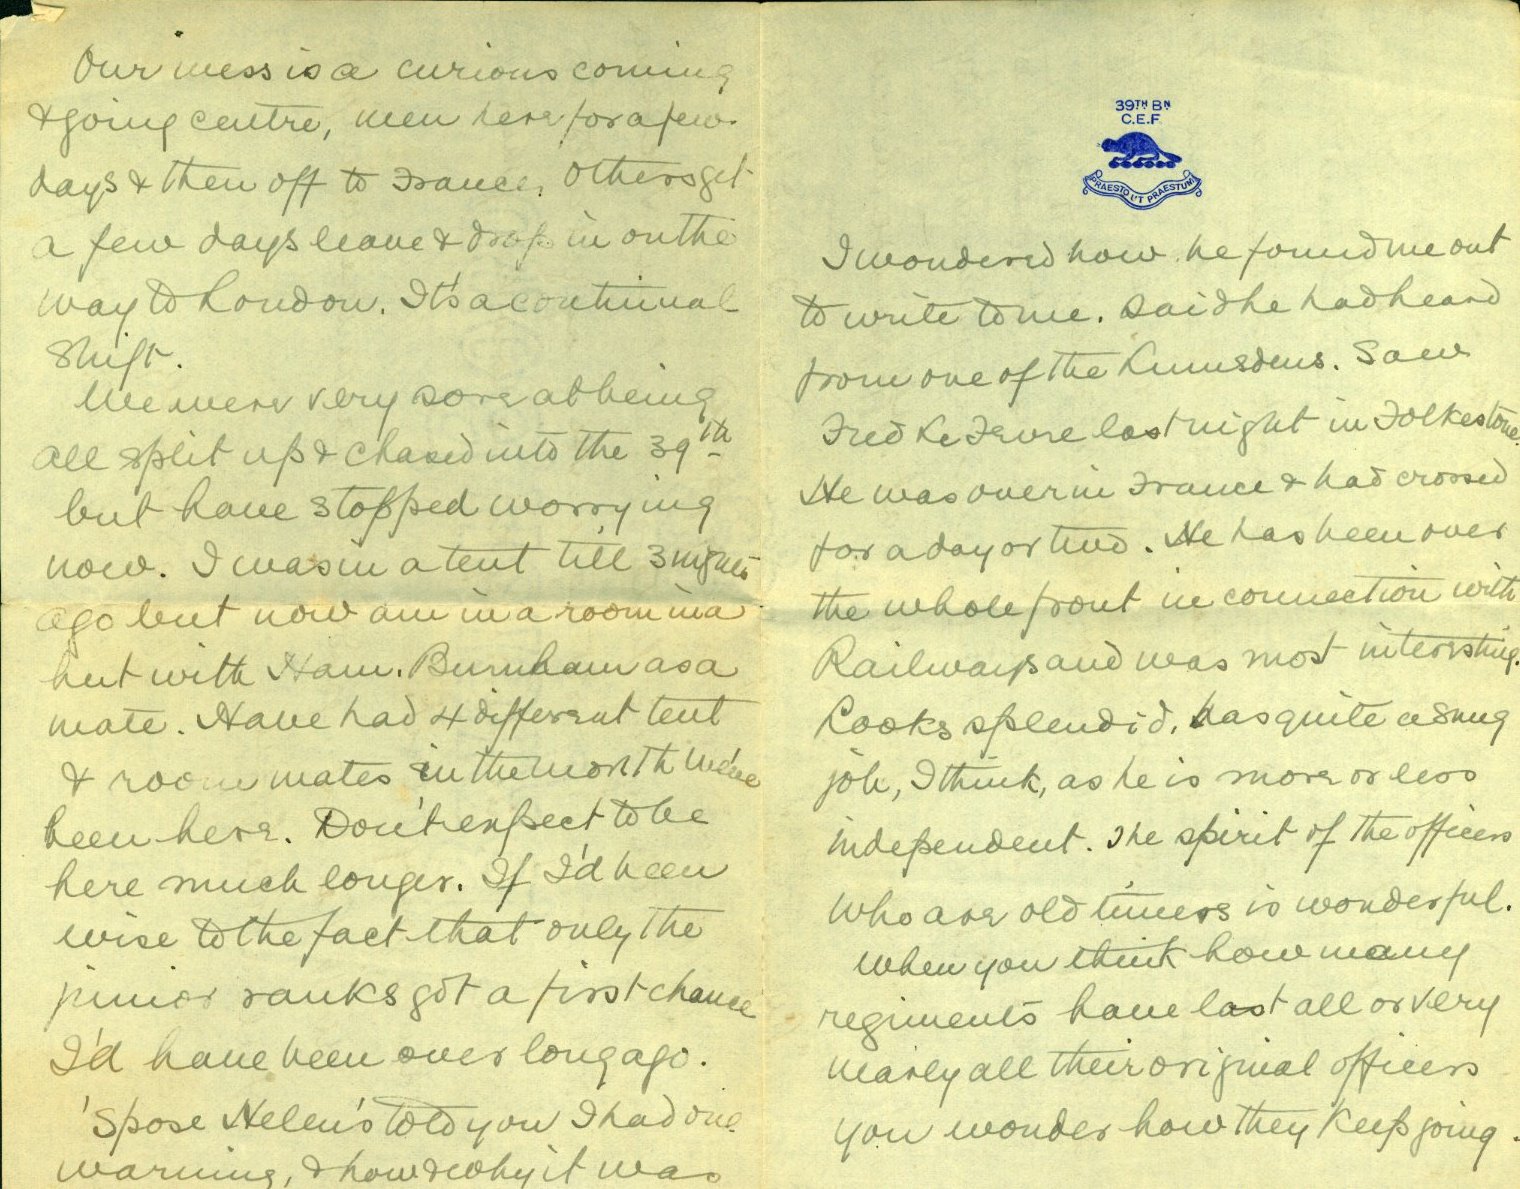 Our mess is a curious coming
& going centre, men here for a few
days & then off to France. Others get
a few days leave & drop in on the
way to London. It's a continual
shift.
We were very sore at being
all split up & chased into the 39th
but have stopped worrying
now. I was in a tent till 3 nights
ago but now am in a room in a
hut with Ham. Burnham as a
mate. Have had 4 different tent
& room mates in the month we've
been here. Don't expect to be
here much longer. If I'd been
wise to the fact that only the
junior ranks got a first chance
I'd have been over long ago.
'Spose Helen's told you I had one
warning, & how & why it was
39TH BN
C.E.F.
PRAESTO UT PRAESTUM
I wondered how he found me out
to write to me. Said he had heard
from one of the Lumsdens. Saw
Fred Le Fevre last night in Folkestone.
He was over in France & had crossed
for a day or two. He has been over
the whole front in connection with
Railways and was most interesting.
Looks splendid, has quite a snug
job, I think, as he is more or less
independent. The spirit of the officers
who are old timers is wonderful.
When you think how many
regiments have lost all or very
nearly all their original officers
you wonder how they keep going.